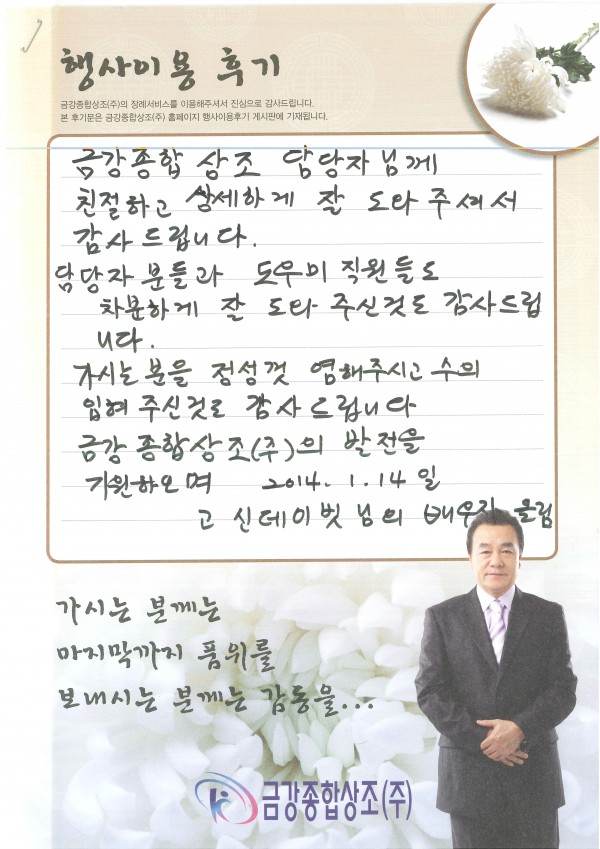 행사이용 후기
금강종합상조(주)의 장례서비스를 이용해주셔서 진심으로 감사드립니다.
본 후기문은 금강종합상조(주) 홈페이지 행사이용후기 게시판에 기재됩니다.
금강종합 상조 담당자님께
친절하고 상세하게 잘 도와 주셔서
감사드립니다.
담당자분들과 도우미 직원들도
차분하게 잘 도와 주신것도 감사드립
니다.
가시는분을 정성껏 염해주시고 수의
입혀 주신것도 감사드립니다
금강종합상조(주)의 발전을
기원하오며 2014. 1. 14 일
고 신데이빗님의 배우자 올림
가시는 분께는
마지막까지 품위를
보내시는 분께는 감동을...
금강종합상조(주)